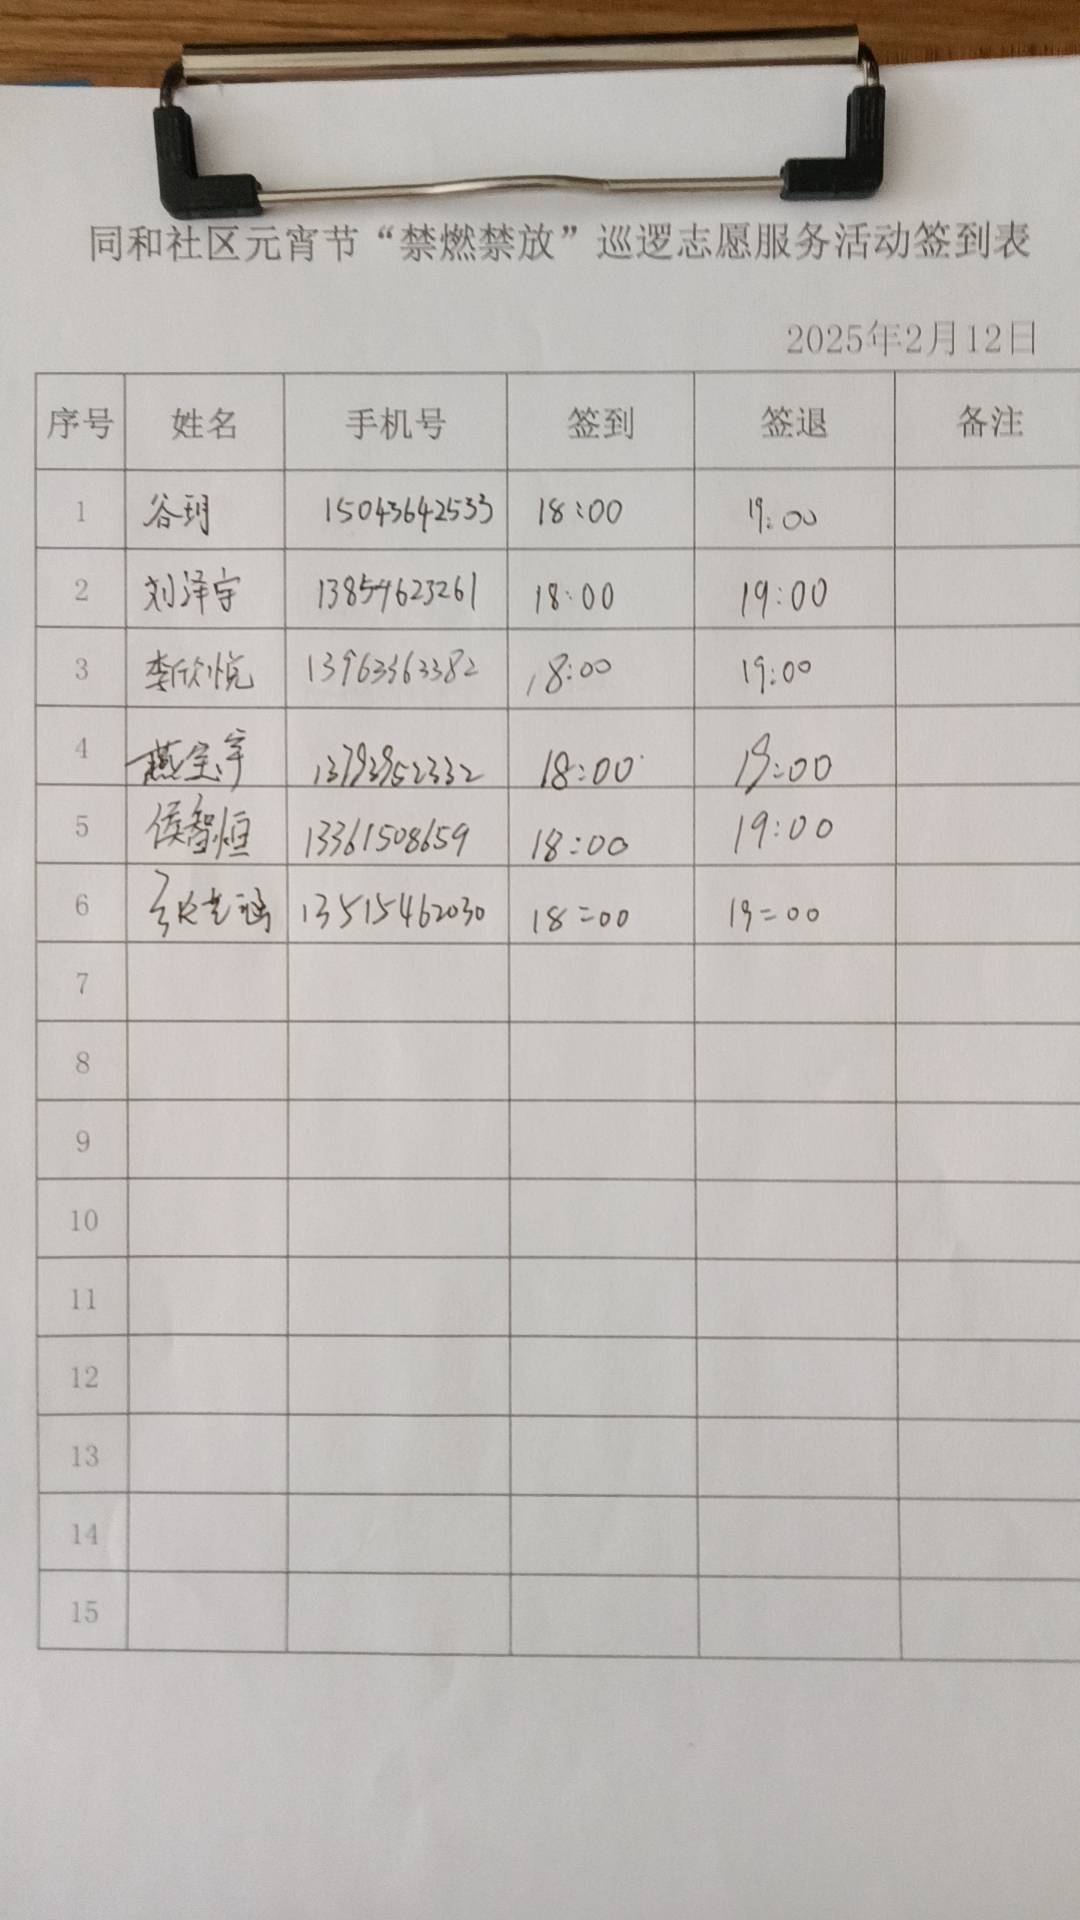 同和社区元宵节“禁燃禁放”巡逻志愿服务活动签到表
2025年2月12日
序号 姓名 手机号 签到 签退 备注
1 谷玥 15043642533 18:00 19:00
2 刘泽宇 13854623261 18:00 19:00
3 李欣悦 13963363382 18:00 19:00
4 燕宝宇 13793952332 18:00 19:00
5 侯智恒 13361508659 18:00 19:00
6 13515462030 18:00 19:00
7
8
9
10
11
12
13
14
15